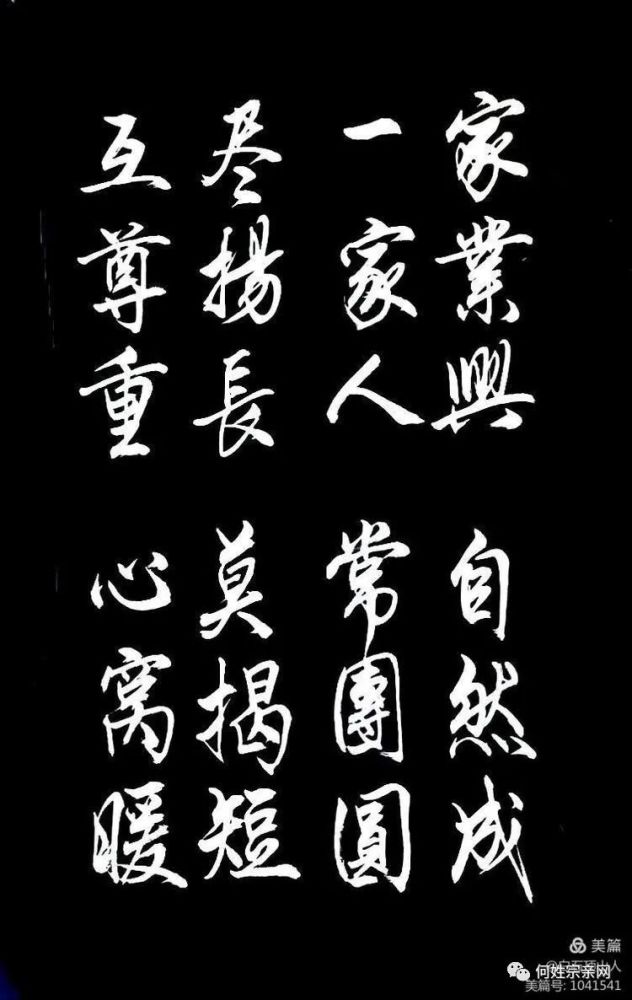 家業興 自然成
一家人 常團圓
尽揚長 莫揭短
互尊重 心窩暖
美篇
何姓宗亲网
美篇号: 1041541